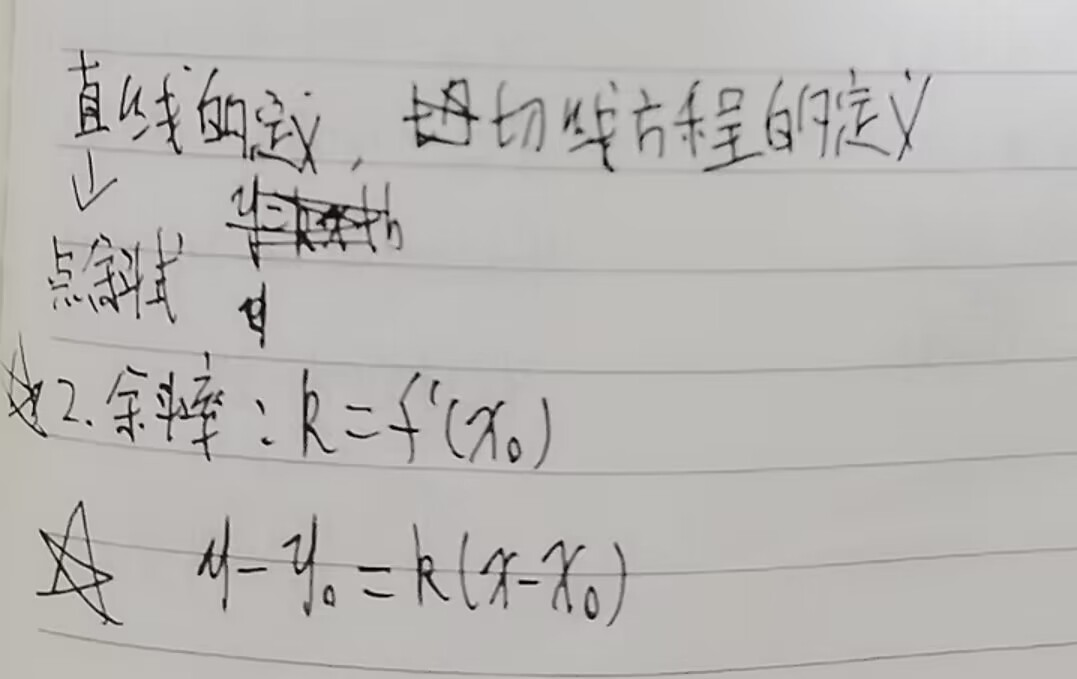 直线的定义, 切线方程的定义
↓
点斜式
☆2.斜率:k=f'(x₀)
☆ y-y₀=k(x-x₀)